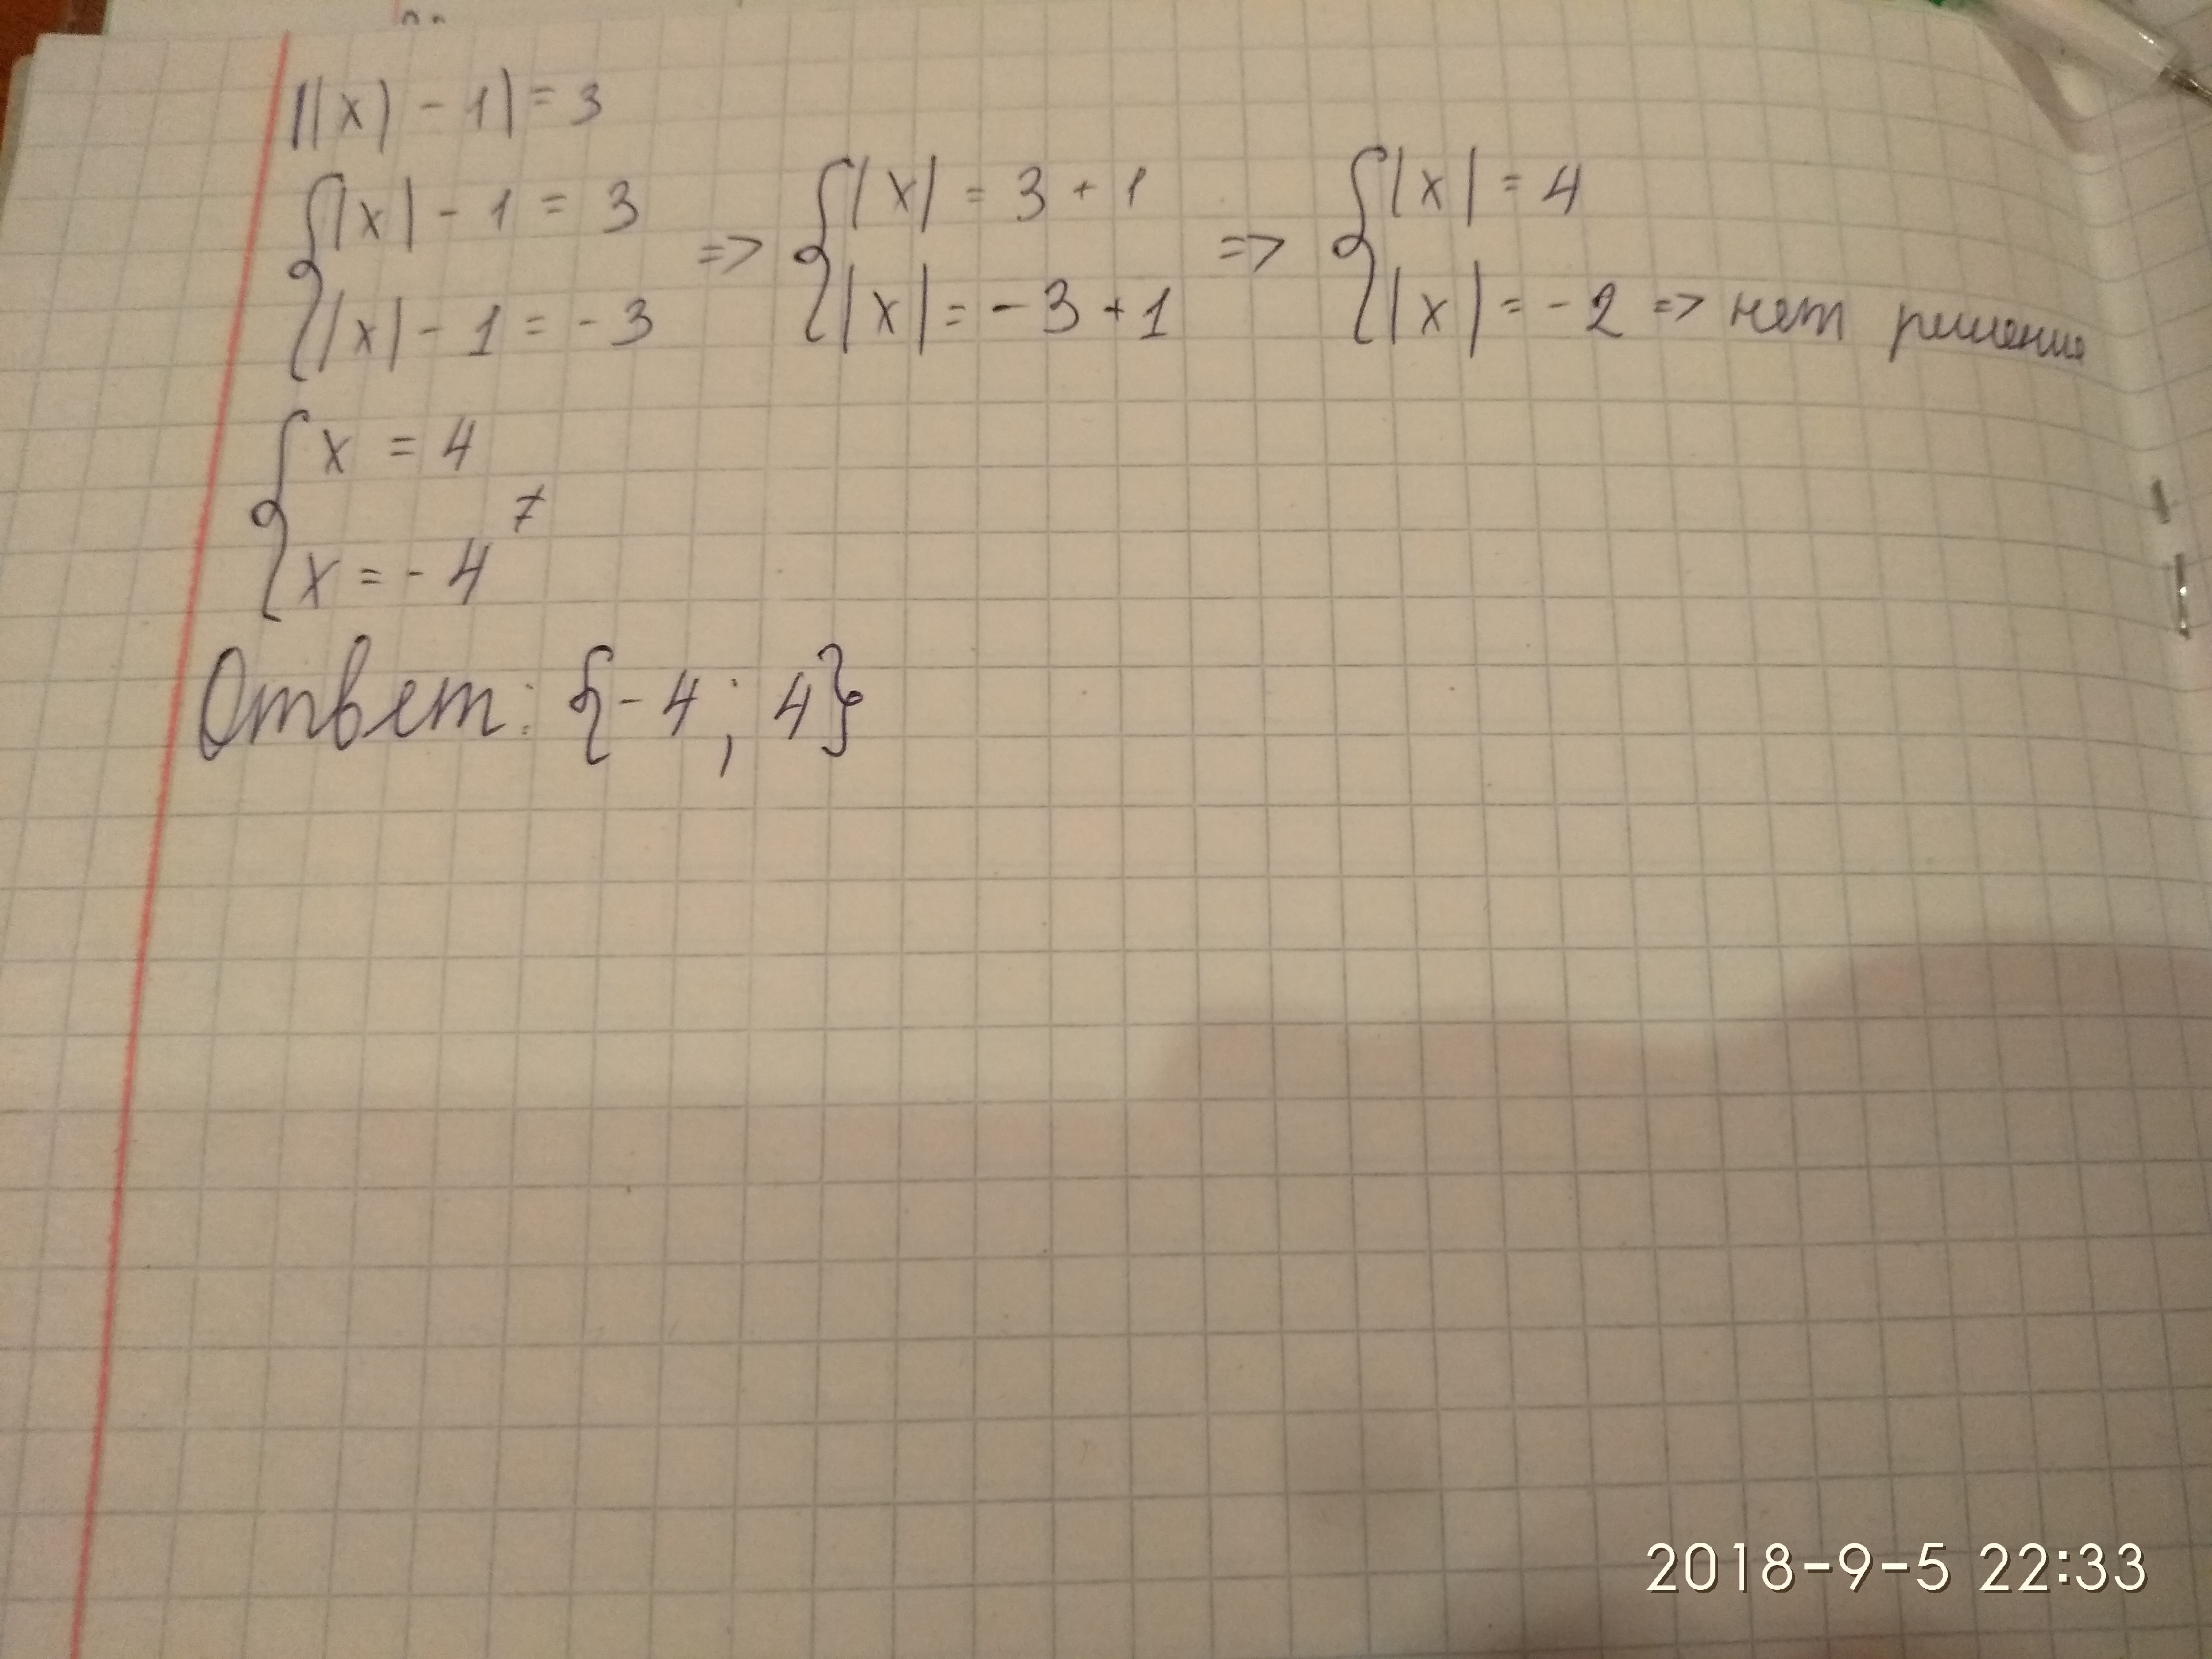 ||x| - 1| = 3
{ |x| - 1 = 3 => { |x| = 3 + 1 => { |x| = 4
|x| - 1 = - 3 |x| = - 3 + 1 |x| = - 2 => нет решения
{ x = 4
x = - 4
Ответ: {- 4 ; 4}
2018-9-5 22:33